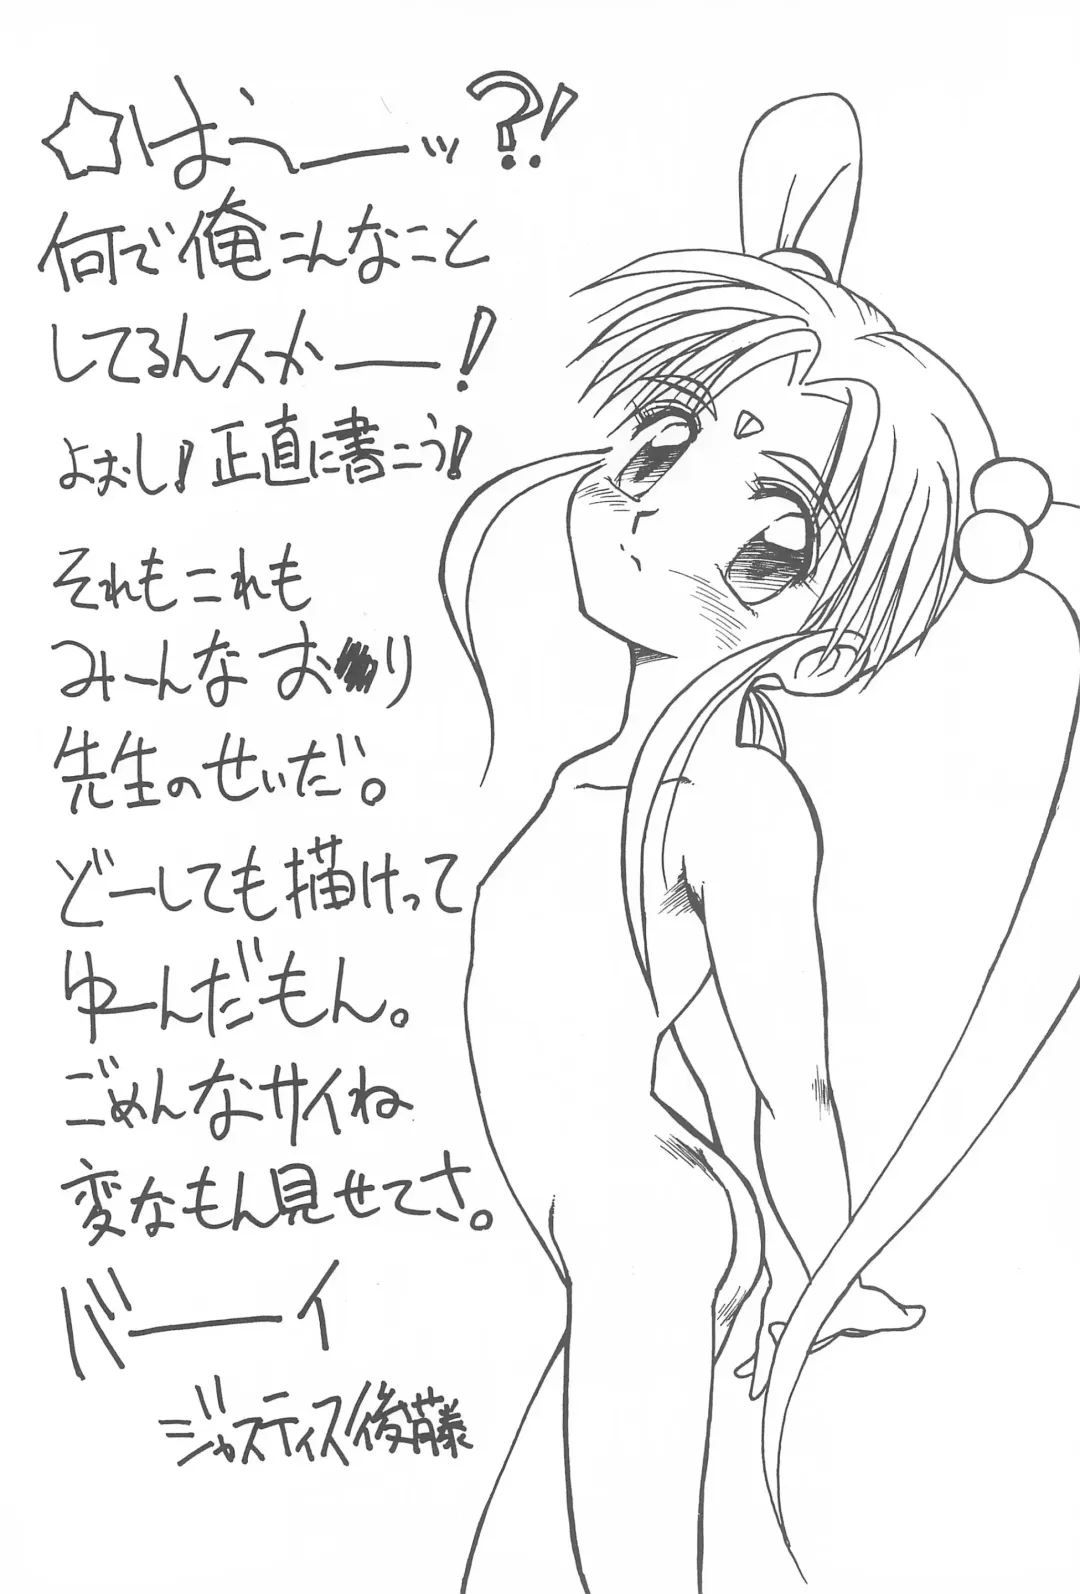 ☆はうーーッ?!
何で俺こんなこと
してるんスかーー!
よおし!正直に書こう!
それもこれも
みーんなお●り
先生のせいだ。
どーしても描けって
ゆーんだもん。
ごめんなサイね
変なもん見せてさ。
バーーイ
ジャスティス後藤